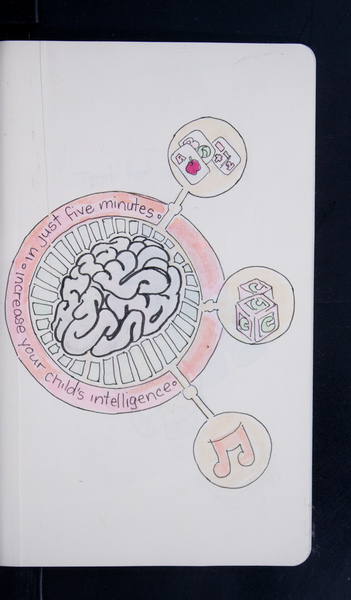 increase your child's intelligence
in just five minutes